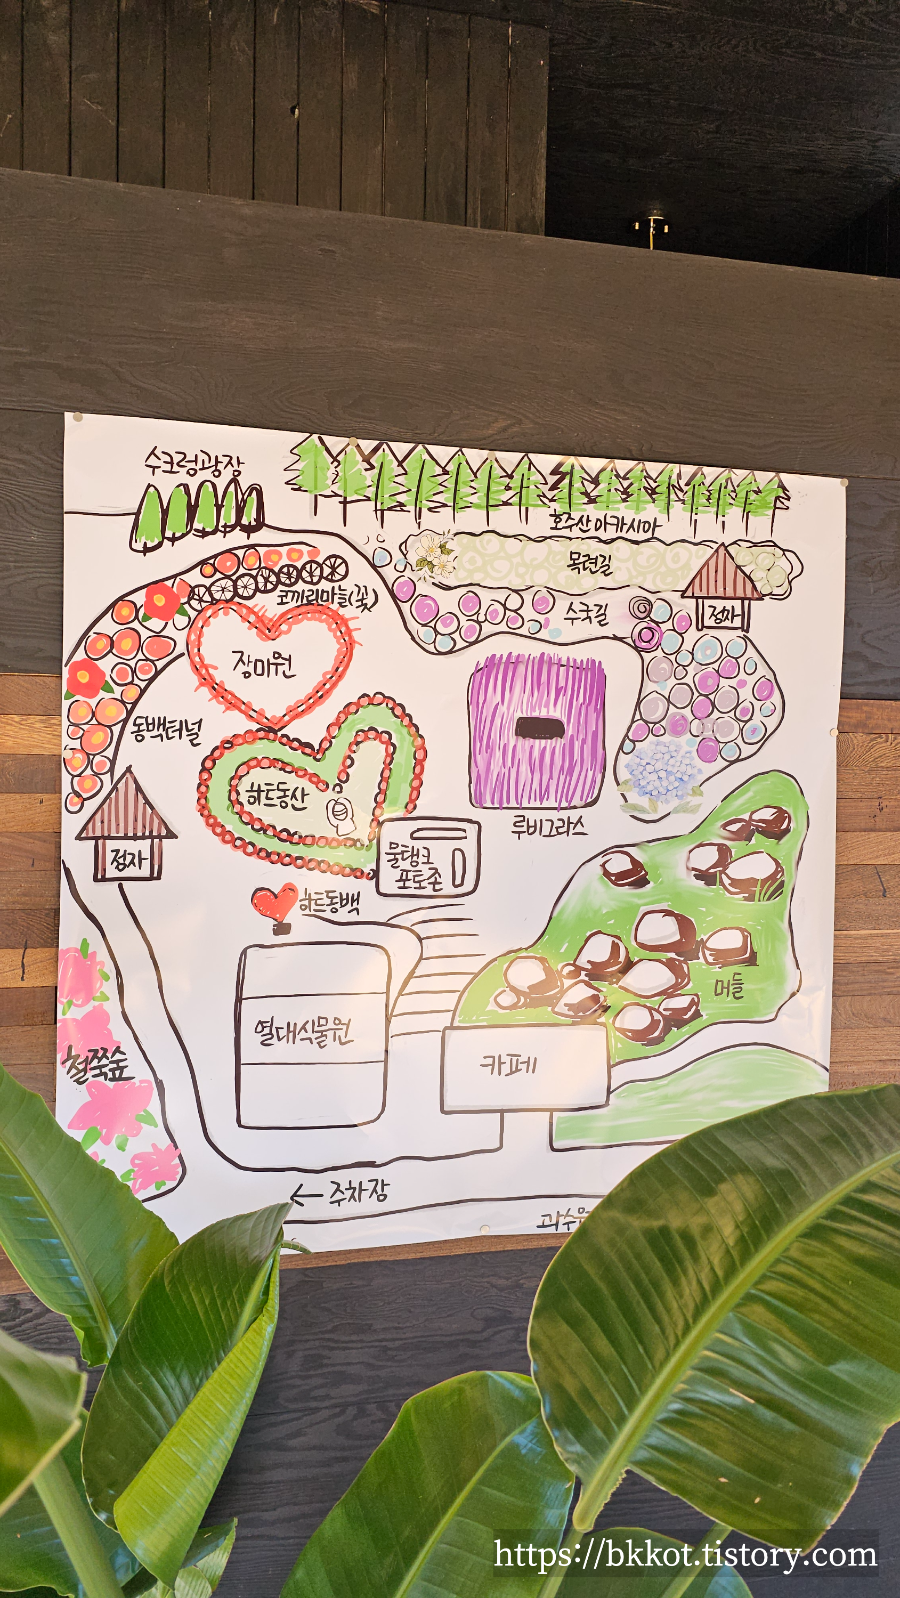 수크령광장
호주산 아카시아
목련길
코끼리마늘(꽃)
수국길
정자
장미원
동백터널
하트동산
루비그라스
정자
물탱크
포토존
하트동백
머들
열대식물원
카페
철쭉숲
← 주차장
https://bkkot.tistory.com